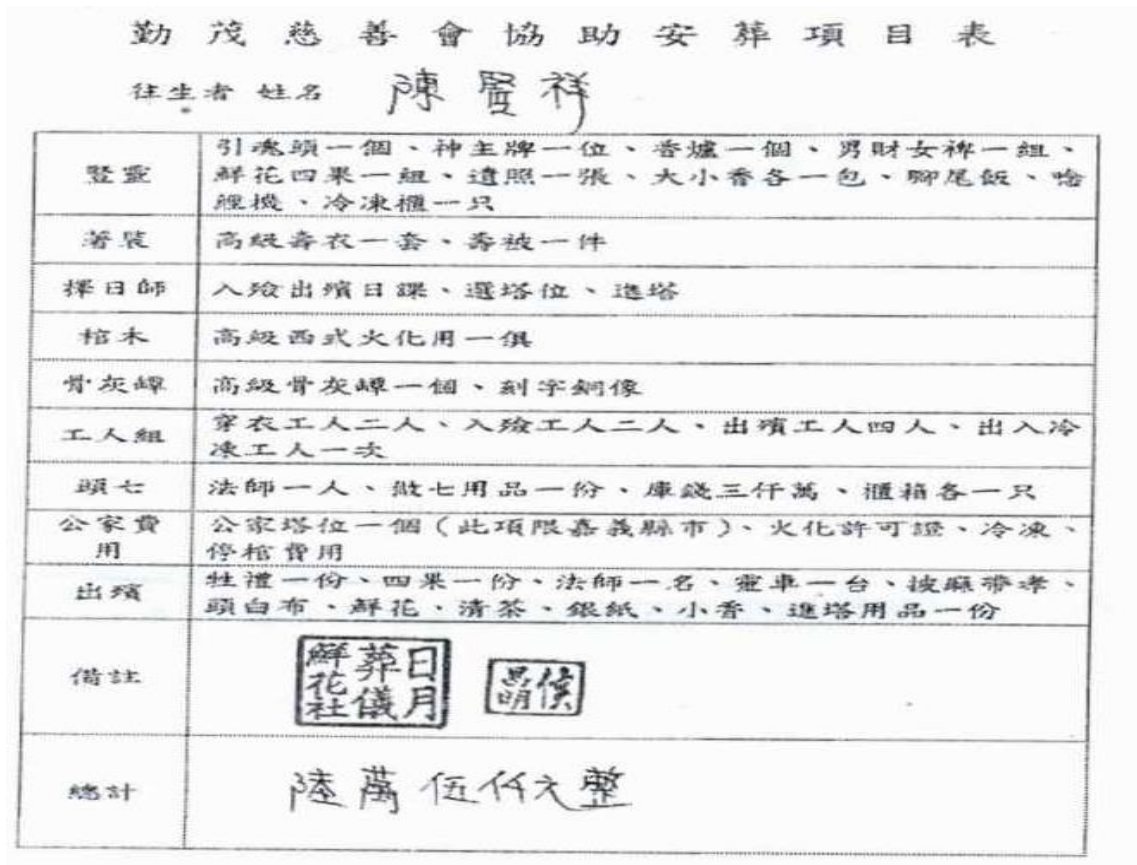 勤茂慈善會協助安葬項目表
往生者 姓名 陳賢祥
豎靈
引魂頭一個、神主牌一位、香爐一個、男財女裨一組、
鮮花四果一組、遺照一張、大小香各一包、腳尾飯、唸
經機、冷凍櫃一只
著裝
高級壽衣一套、壽被一件
擇日師
入殮出殯日課、選塔位、進塔
棺木
高級西式火化用一俱
骨灰罈
高級骨灰罈一個、刻字銅像
工人組
穿衣工人二人、入殮工人二人、出殯工人四人、出入冷
凍工人一次
頭七
法師一人、做七用品一份、庫錢三仟萬、櫃箱各一只
公家費
用
公家塔位一個(此項限嘉義縣市)、火化許可證、冷凍、
停棺費用
出殯
牲禮一份、四果一份、法師一名、靈車一台、披麻帶孝、
頭白布、鮮花、清茶、銀紙、小香、進塔用品一份
備註
日月
葬儀
鮮花社
侯
昌明
總計
陸萬伍仟元整